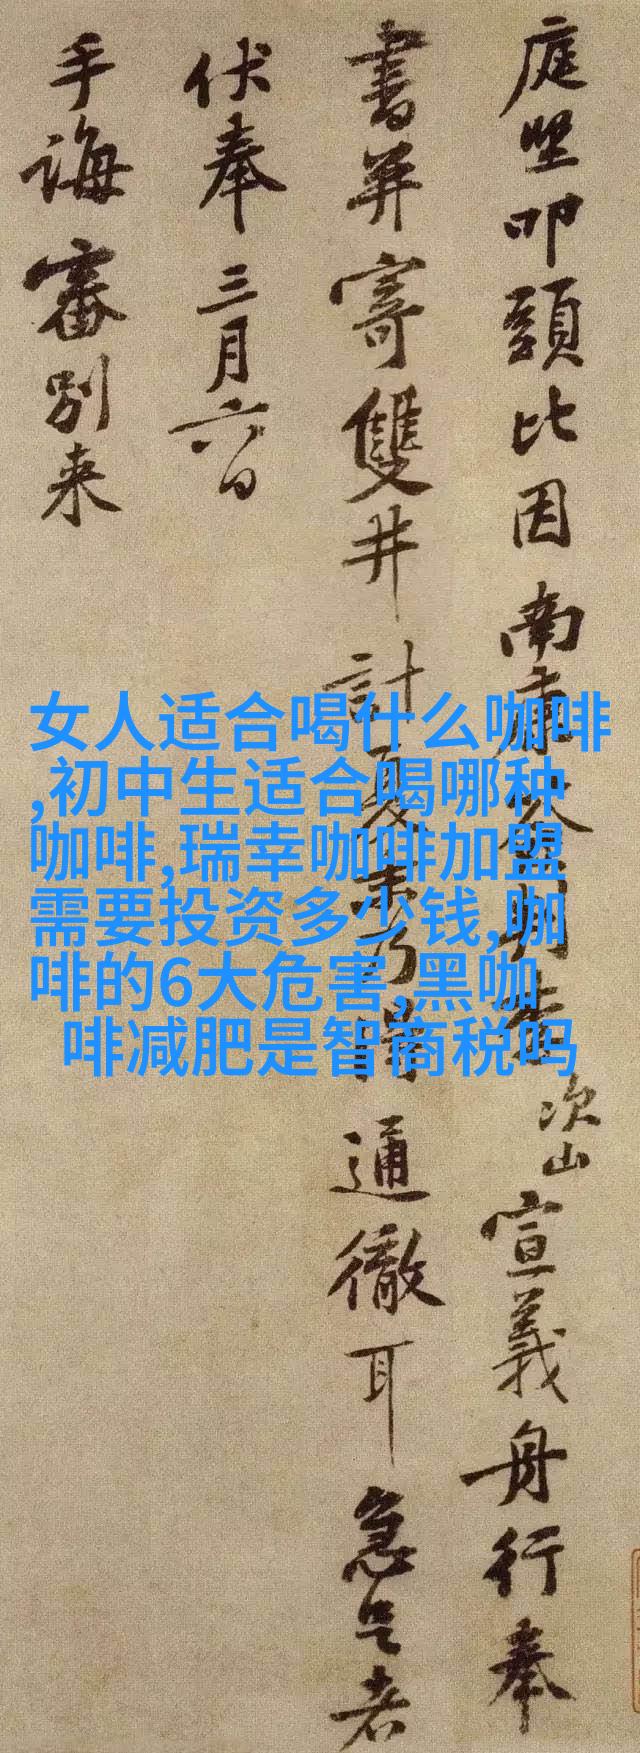 庭堅叩頭比因南康次山宣義舟行奉
書并寄雙井計夏末乃得通徹耳急足者
伏奉三月六日
手誨審別来
女人适合喝什么咖啡
,初中生适合喝哪种
咖啡,瑞幸咖啡加盟
需要投资多少钱,咖
啡的6大危害,黑咖
啡减肥是智商税吗